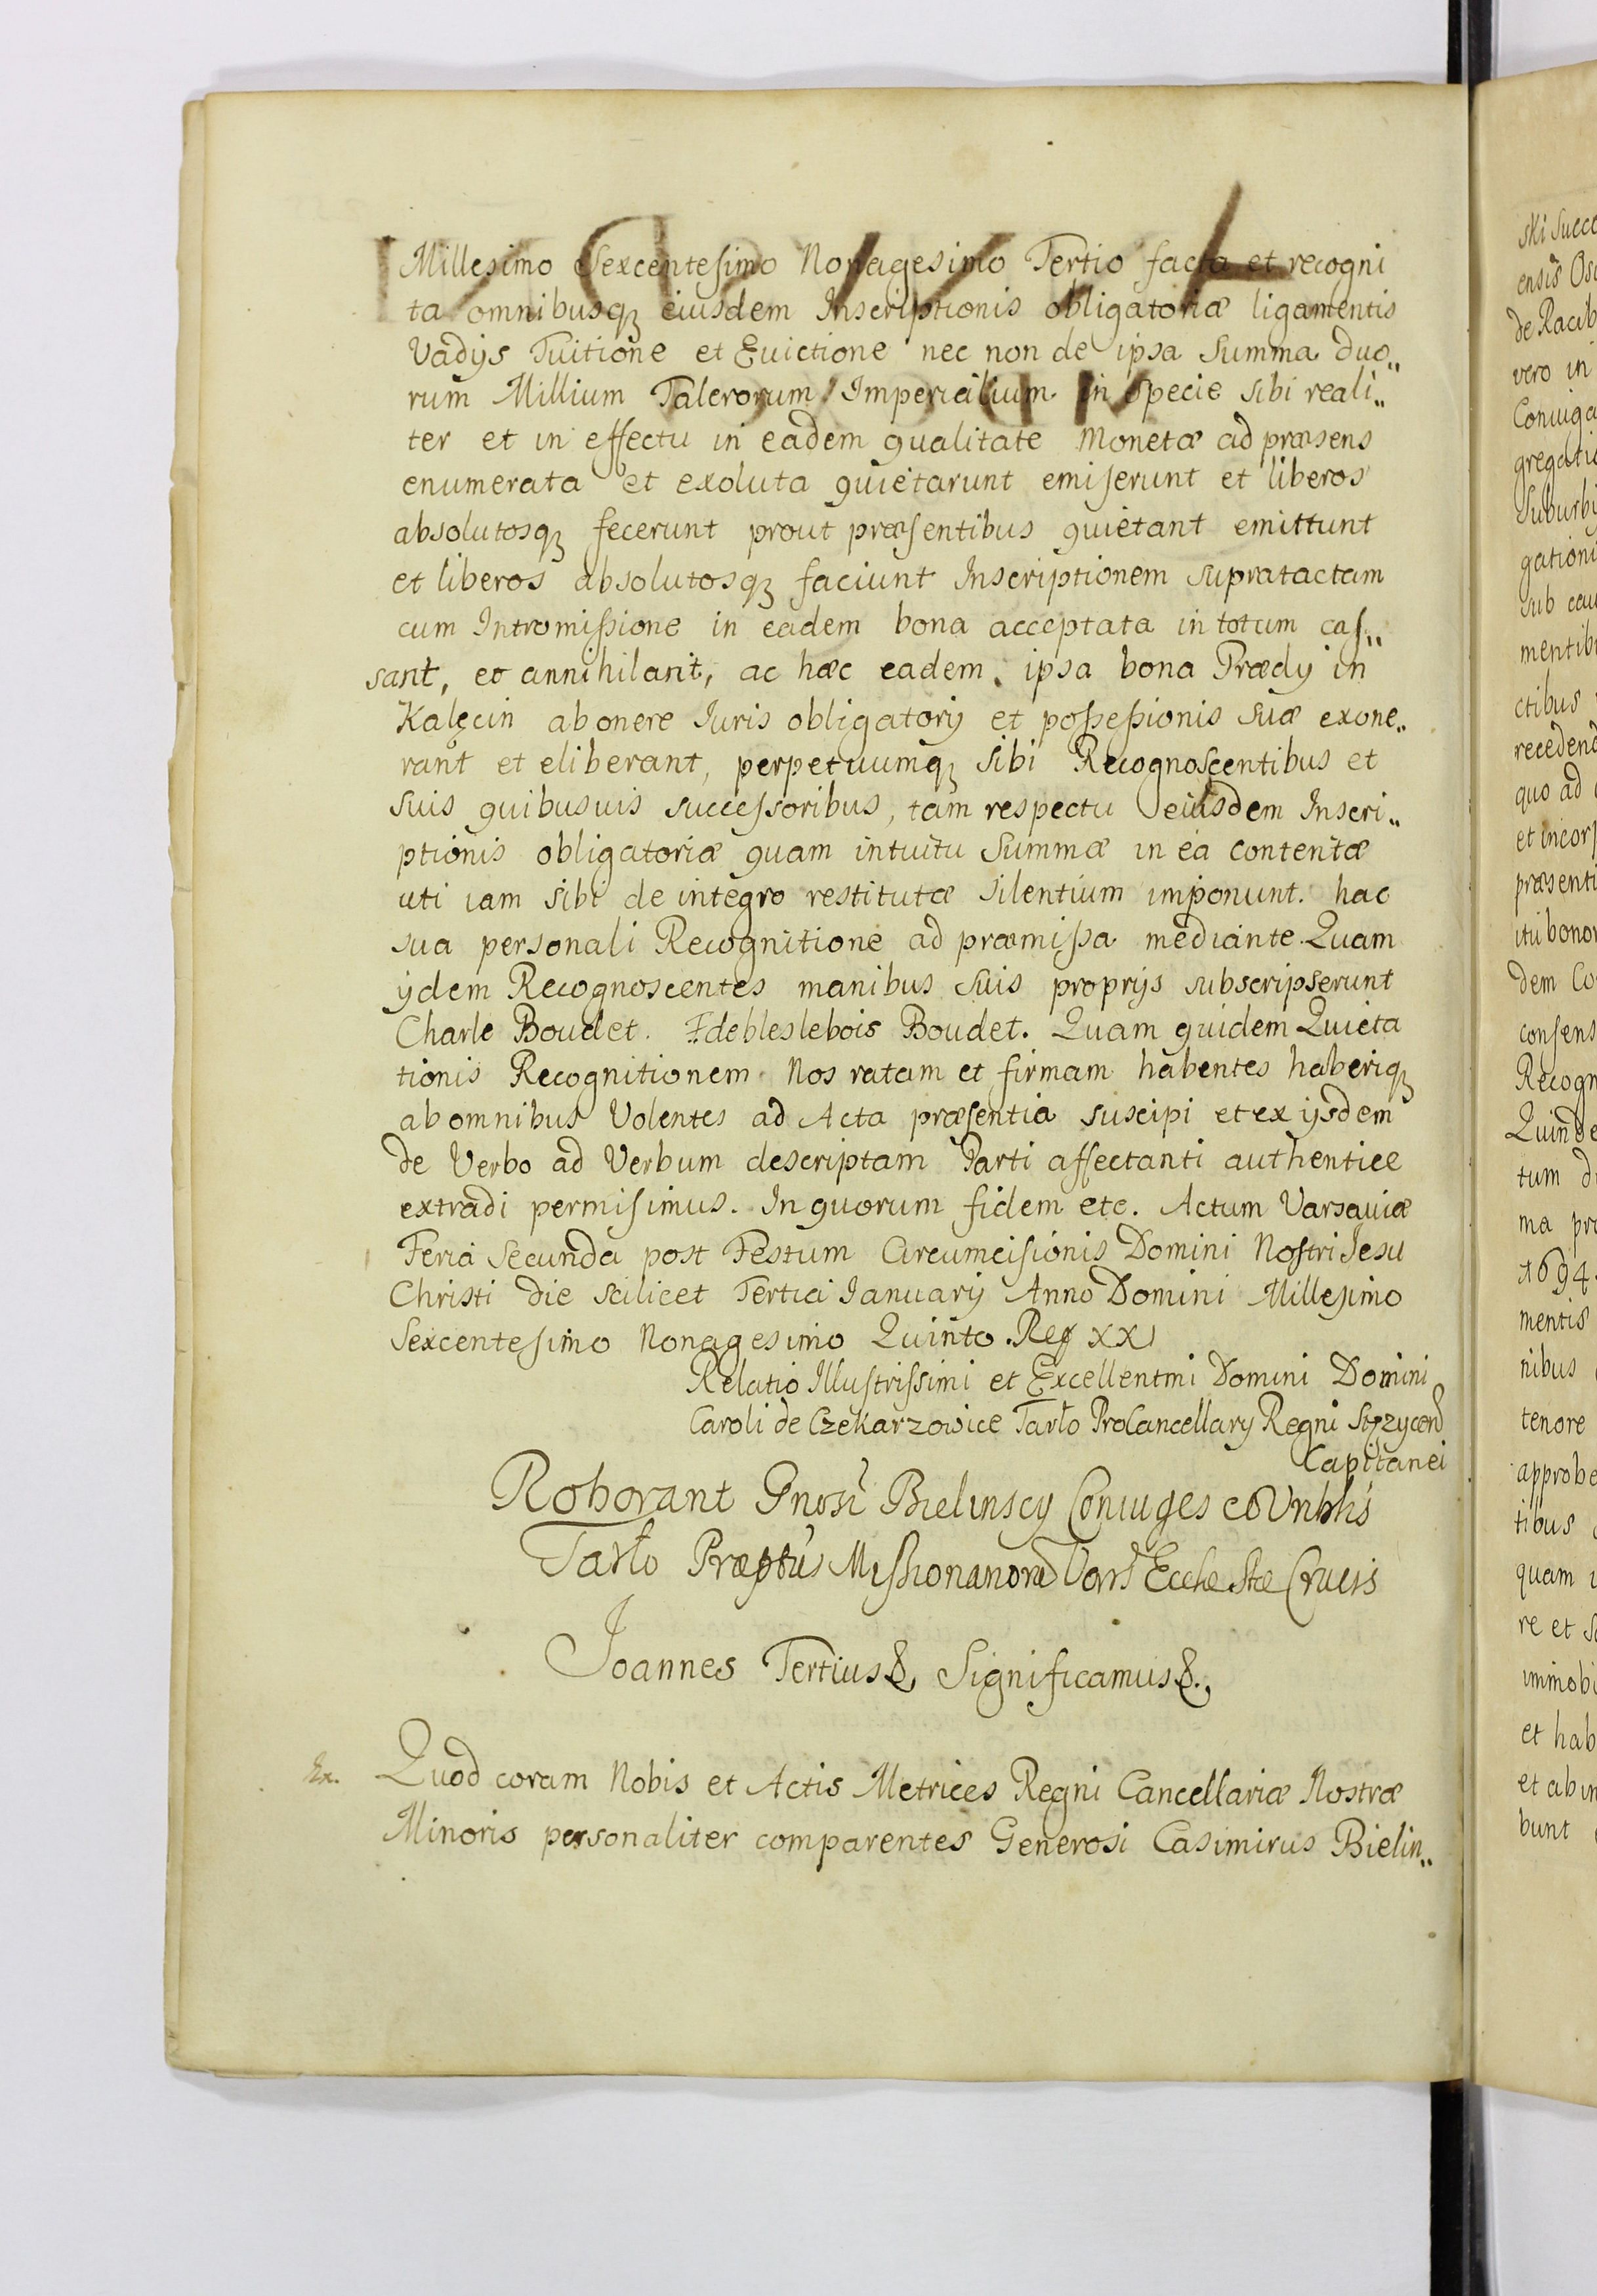 Millesimo Sexcentesimo Nonagesimo Tertio facta et recogni
ta omnibusq; eiusdem Inscriptionis obligatoriæ ligamentis
Vadijs Tuitione et Euictione nec non de ipsa Summa duo„
rum Millium Talerorum Imperialium in specie sibi reali„
ter et in effectu in eadem qualitate Monetæ ad præsens
enumerata et exoluta quietarunt emiserunt et liberos
absolutosq; fecerunt prout præsentibus quietant emittunt
et liberos absolutosq; faciunt Inscriptionem supratactam
cum Intromissione in eadem bona acceptata in totum cas„
sant, et annihilant, ac hæc eadem ipsa bona Prædij in
Kalęcin ab onere Iuris obligatorij et possessionis suæ exone„
rant et eliberant, perpetuumq; sibi Recognoscentibus et
suis quibusuis successoribus, tam respectu eiusdem Inscri„
ptionis obligatoriæ quam intuitu Summæ in ea contentæ
uti iam sibi de integro restitutæ silentium imponunt. hac
sua personali Recognitione ad præmissa mediante. Quam
ijdem Recognoscentes manibus suis proprijs subscripserunt
Charle Boudet. Fdebleslebois Boudet. Quam quidem Quieta
tionis Recognitionem Nos ratam et firmam habentes haberiq;
ab omnibus Volentes ad Acta præsentia suscipi et ex ijsdem
de Verbo ad Verbum descriptam Parti affectanti authentice
extradi permisimus. In quorum fidem etc. Actum Varsauiæ
Feria Secunda post Festum Circumcisionis Domini Nostri Jesu
Christi die scilicet Tertia Ianuarij Anno Domini Millesimo
Sexcentesimo Nonagesimo Quinto. Reg XXI
Relatio Illustrissimi et Excellentmi Domini Domini
Caroli de Czekarzowice Tarło ProCancellarij Regni
Capitanei
Roborant Gnosi Bielinscy Coniuges
Tarło Præptus Crucis
Joannes Tertius &, Significamus &.,
Ex. Quod coram Nobis et Actis Metrices Regni Cancellariæ Nostræ
Minoris personaliter comparentes Generosi Casimirus Bielin„
ski Succe
ensis
de Racib
vero in
Coniuga
gregatio
Suburbi
gationi
sub
mentib
ctibus
recedend
quo ad
et incorp
præsenti
itu bonor
dem Co
consens
Recogn
Quinde
tum
ma pr
1694.
mentis
nibus
tenore
approbe
tibus
quam
re et
immobi
et hab
et ab in
bunt